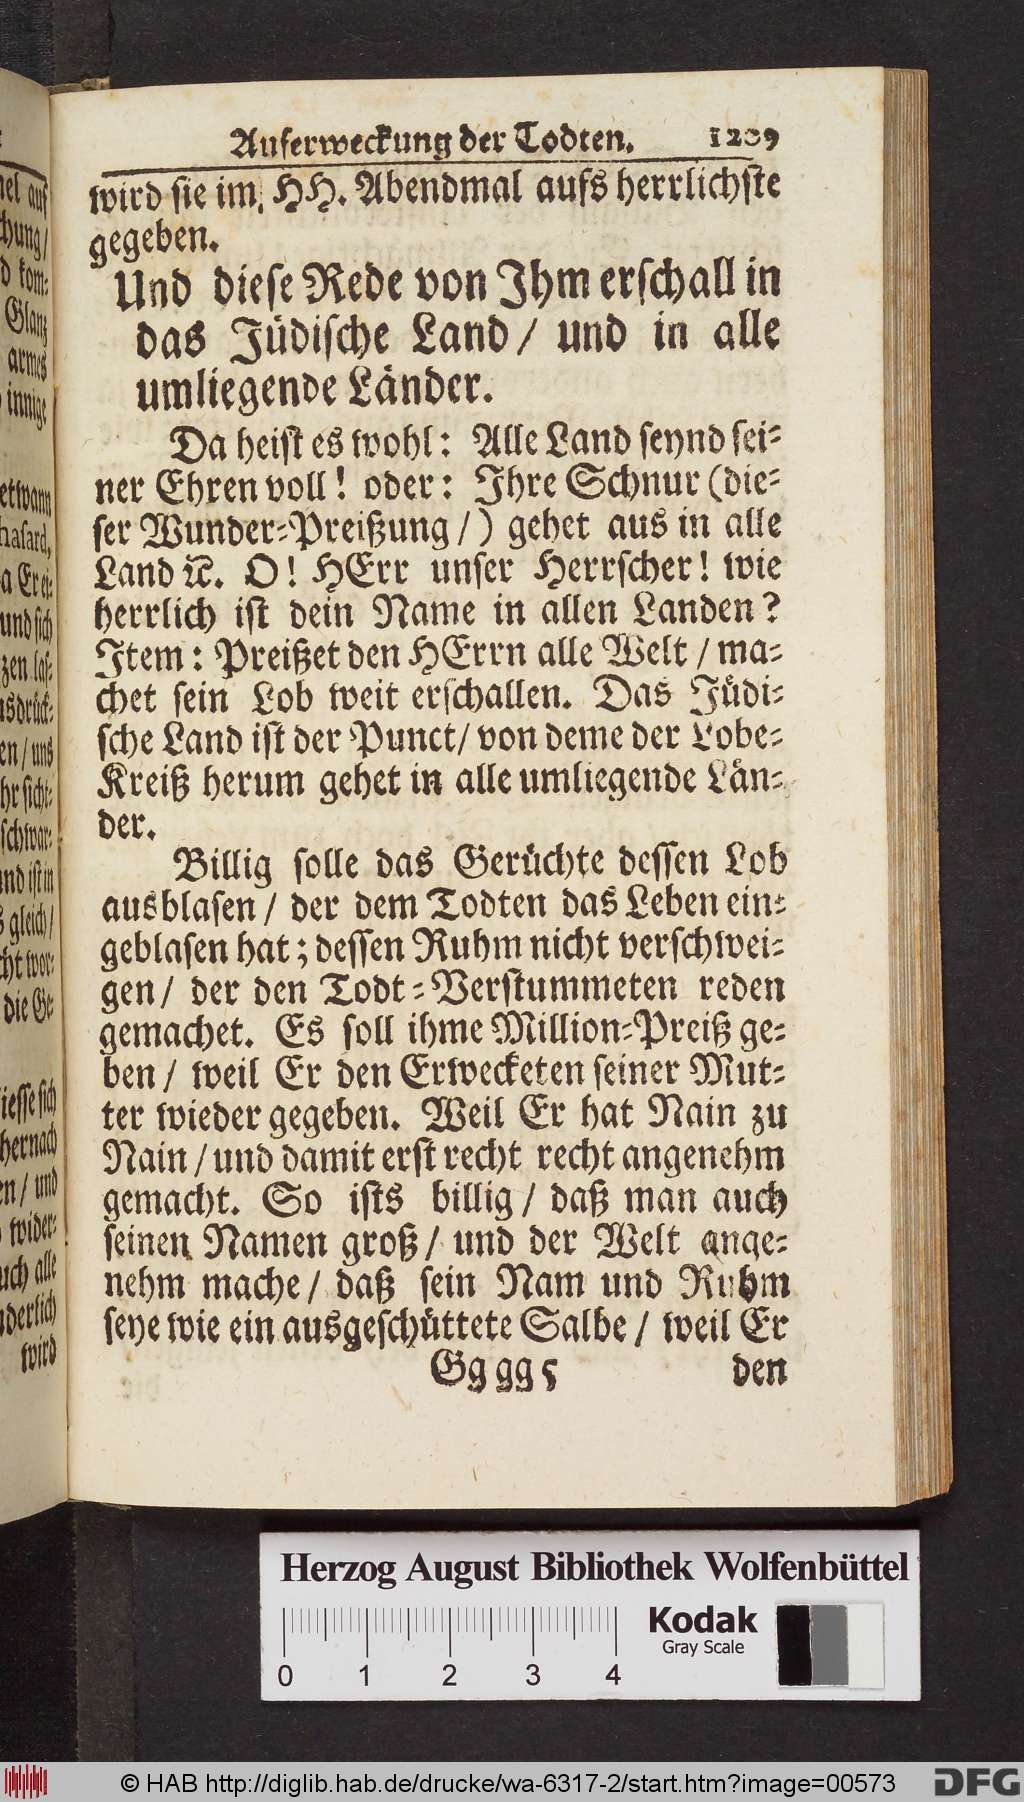 Auferweckung der Todten. 1209
wird sie im HH. Abendmal aufs herrlichste
gegeben.
Und diese Rede von Ihm erschall in
das Jüdische Land / und in alle
umliegende Länder.
Da heist es wohl: Alle Land seynd sei-
ner Ehren voll! oder: Ihre Schnur (die-
ser Wunder-Preißung /) gehet aus in alle
Land ꝛc. O! HErr unser Herrscher! wie
herrlich ist dein Name in allen Landen?
Item: Preißet den HErrn alle Welt / ma-
chet sein Lob weit erschallen. Das Jüdi-
sche Land ist der Punct / von deme der Lobe-
Kreiß herum gehet in alle umliegende Län-
der.
Billig solle das Gerüchte dessen Lob
ausblasen / der dem Todten das Leben ein-
geblasen hat; dessen Ruhm nicht verschwei-
gen / der den Todt-Verstummeten reden
gemachet. Es soll ihme Million-Preiß ge-
ben / weil Er den Erwecketen seiner Mut-
ter wieder gegeben. Weil Er hat Nain zu
Nain / und damit erst recht recht angenehm
gemacht. So ists billig / daß man auch
seinen Namen groß / und der Welt ange-
nehm mache / daß sein Nam und Ruhm
seye wie ein ausgeschüttete Salbe / weil Er
Gg gg 5 den
Herzog August Bibliothek Wolfenbüttel
0 1 2 3 4
Kodak
Gray Scale
© HAB http://diglib.hab.de/drucke/wa-6317-2/start.htm?image=00573
DFG